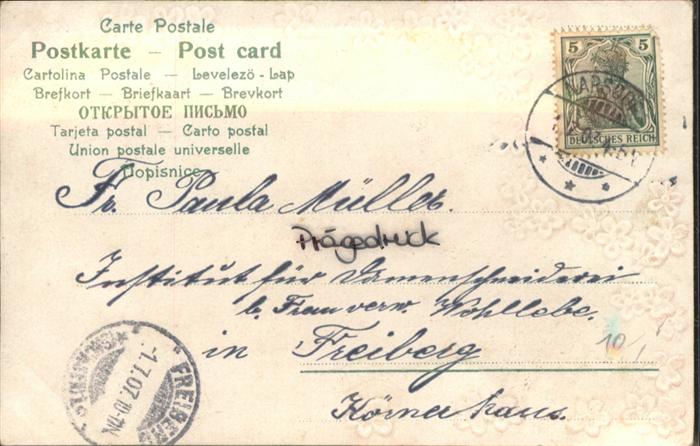 Carte Postale
Postkarte – Post card
Cartolina Postale – Levelező - Lap
Brefkort – Briefkaart – Brevkort
ОТКРЫТОЕ ПИСЬМО
Tarjeta postal – Carto postal
Union postale universelle
Dopisnice
5 5
DEUTSCHES REICH
Fr. Paula Müller.
Prägedruck
Institut für Damenschneiderei
b. Frau verw. Wohllebe.
in Freiberg
10,
Körnerhaus.
FREIBERG
1.7.07. 10-11V.
(SACHSEN)